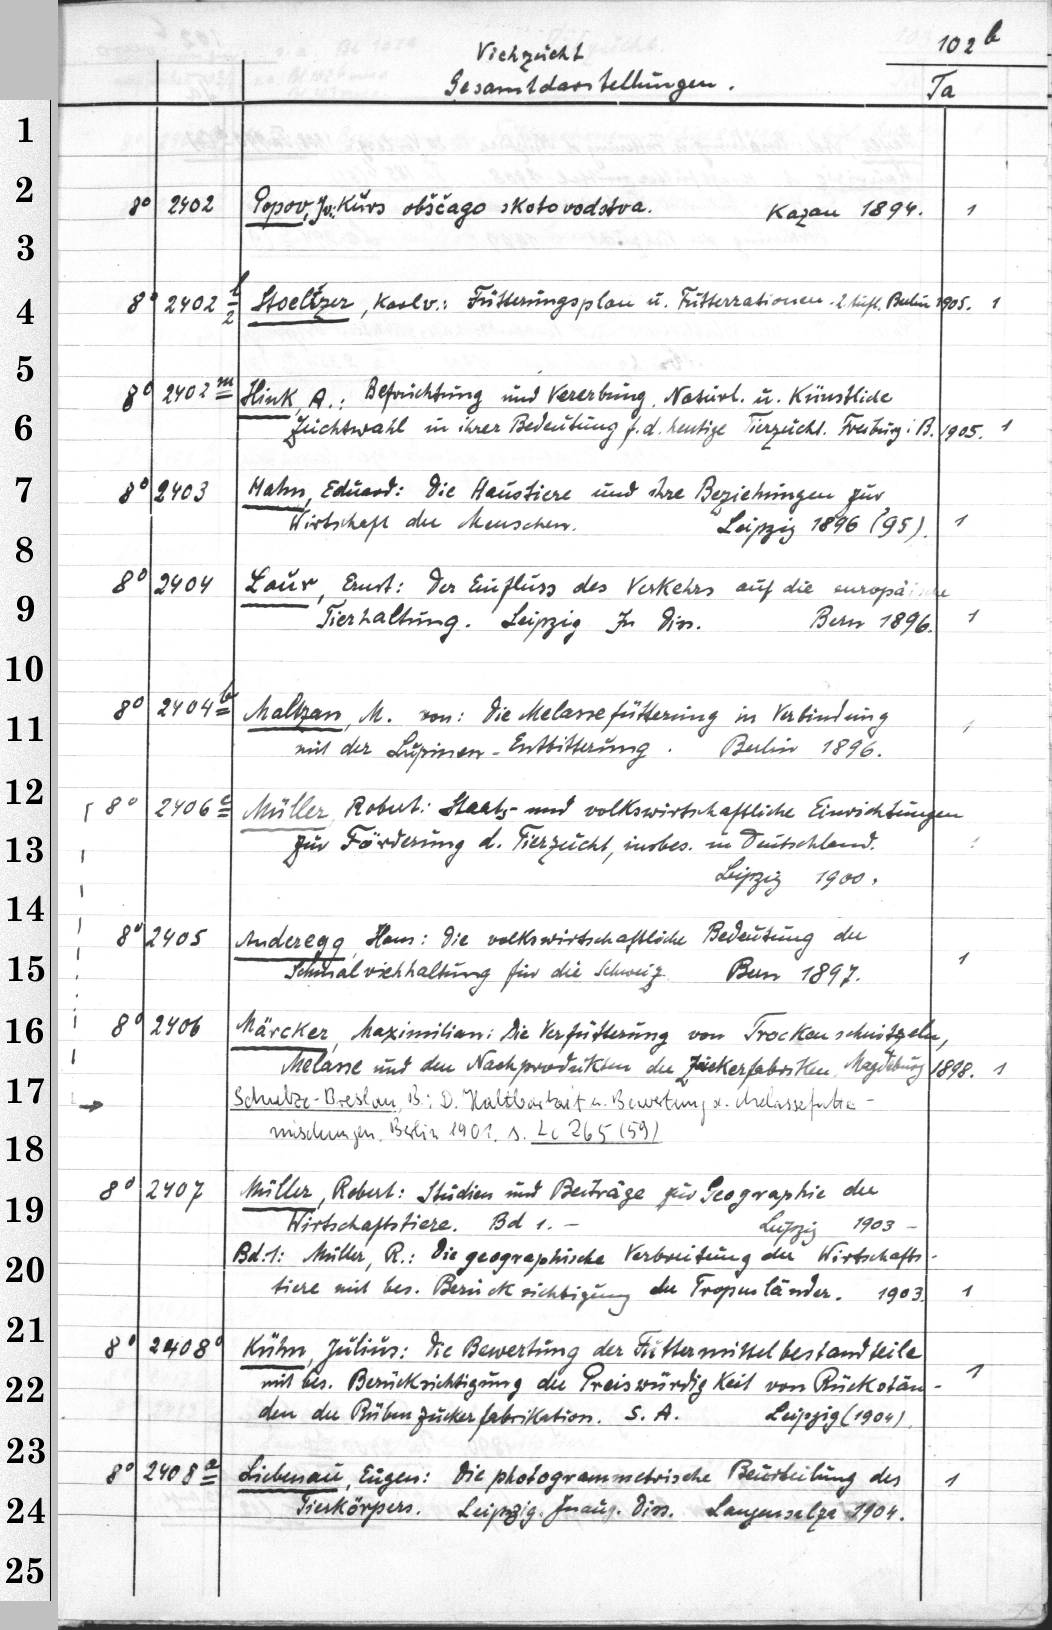 102 b
Viehzucht
Gesamtdarstellungen.
Ta
1
2
8° 2402 Popov, Jv.: Kurs obščago skotovodstva. Kazan 1894. 1
3
4
8° 2402 l/2 Stoeltzer, : Fütterungsplan u. Futterrationen. 2. Aufl. Berlin 1905. 1
5
8° 2402 m Hink, A.: Befruchtung und Vererbung. Natürl. u. Künstliche
6
Zuchtwahl in ihrer Bedeutung f. d. heutige Tierzucht. Freiburg i B. 1905. 1
7
8° 2403 Hahn, Eduard: Die Haustiere und ihre Beziehungen zur
Wirtschaft der Menschen. Leipzig 1896 (95). 1
8
8° 2404 Laur, Ernst: Der Einfluss des Verkehrs auf die europäische
9
Tierhaltung. Leipzig In Diss. Bern 1896. 1
10
8° 2404 b Maltzan, M. von: Die Melassefütterung in Verbindung
11
mit der Lupinen-Entbitterung. Berlin 1896. 1
12
8° 2406 c Müller, Robert: Staats- und volkswirtschaftliche Einrichtungen
13
zur Förderung d. Tierzucht, insbes. in Deutschland.
Leipzig 1900.
14
8° 2405 Anderegg, Hans: Die volkswirtschaftliche Bedeutung der
15
Schmalviehhaltung für die Schweiz. Bern 1897. 1
16
8° 2406 Märcker, Maximilian: Die Verfütterung von Trockenschnitzeln,
Melasse und den Nachprodukten der Zuckerfabriken. Magdeburg 1898. 1
17
→ Schulze-Breslau, B.: D. Haltbarkeit u. Bewertung d. Melassefutter-
mischungen. Berlin 1901. s. Lc 265 (59)
18
8° 2407 Müller, Robert: Studien und Beiträge zur Geographie der
19
Wirtschaftstiere. Bd 1. – Leipzig 1903 –
Bd. 1: Müller, R.: Die geographische Verbreitung der Wirtschafts-
20
tiere mit bes. Berücksichtigung der Tropenländer. 1903. 1
21
8° 2408 Kühn, Julius: Die Bewertung der Futtermittelbestandteile
22
mit bes. Berücksichtigung der Preiswürdigkeit von Rückstän- 1
den der Rübenzuckerfabrikation. S. A. Leipzig (1904).
23
8° 2408 a Liebenau, Eugen: Die photogrammetrische Beurteilung des 1
24
Tierkörpers. Leipzig. Inaug. Diss. Langensalza 1904.
25